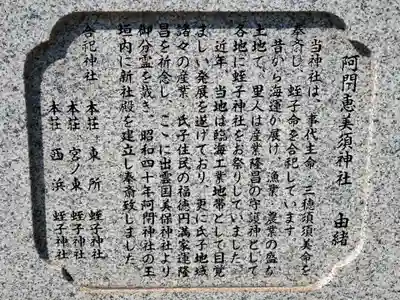 阿閇恵美須神社 由緒
当神社は、事代主命、三穂須須美命を
奉斎し、蛭子命を合祀しています。
昔から海運が開け、漁業、農業の盛な
土地で、里人は産業隆昌の守護神として
各地に蛭子神社をお祭りしていました。
近年、当地は臨海工業地帯として目覚
ましい発展を遂げており、更に氏子地域
諸々の産業、氏子住民の福徳円満家運隆
昌を祈念し、ここに出雲国美保神社より
御分霊を戴き、昭和四十年阿閇神社の玉
垣内に新社殿を建立し奉斎致しました。
合祀神社 本荘 東所 蛭子神社
本荘 宮ノ東 蛭子神社
本荘 西浜 蛭子神社